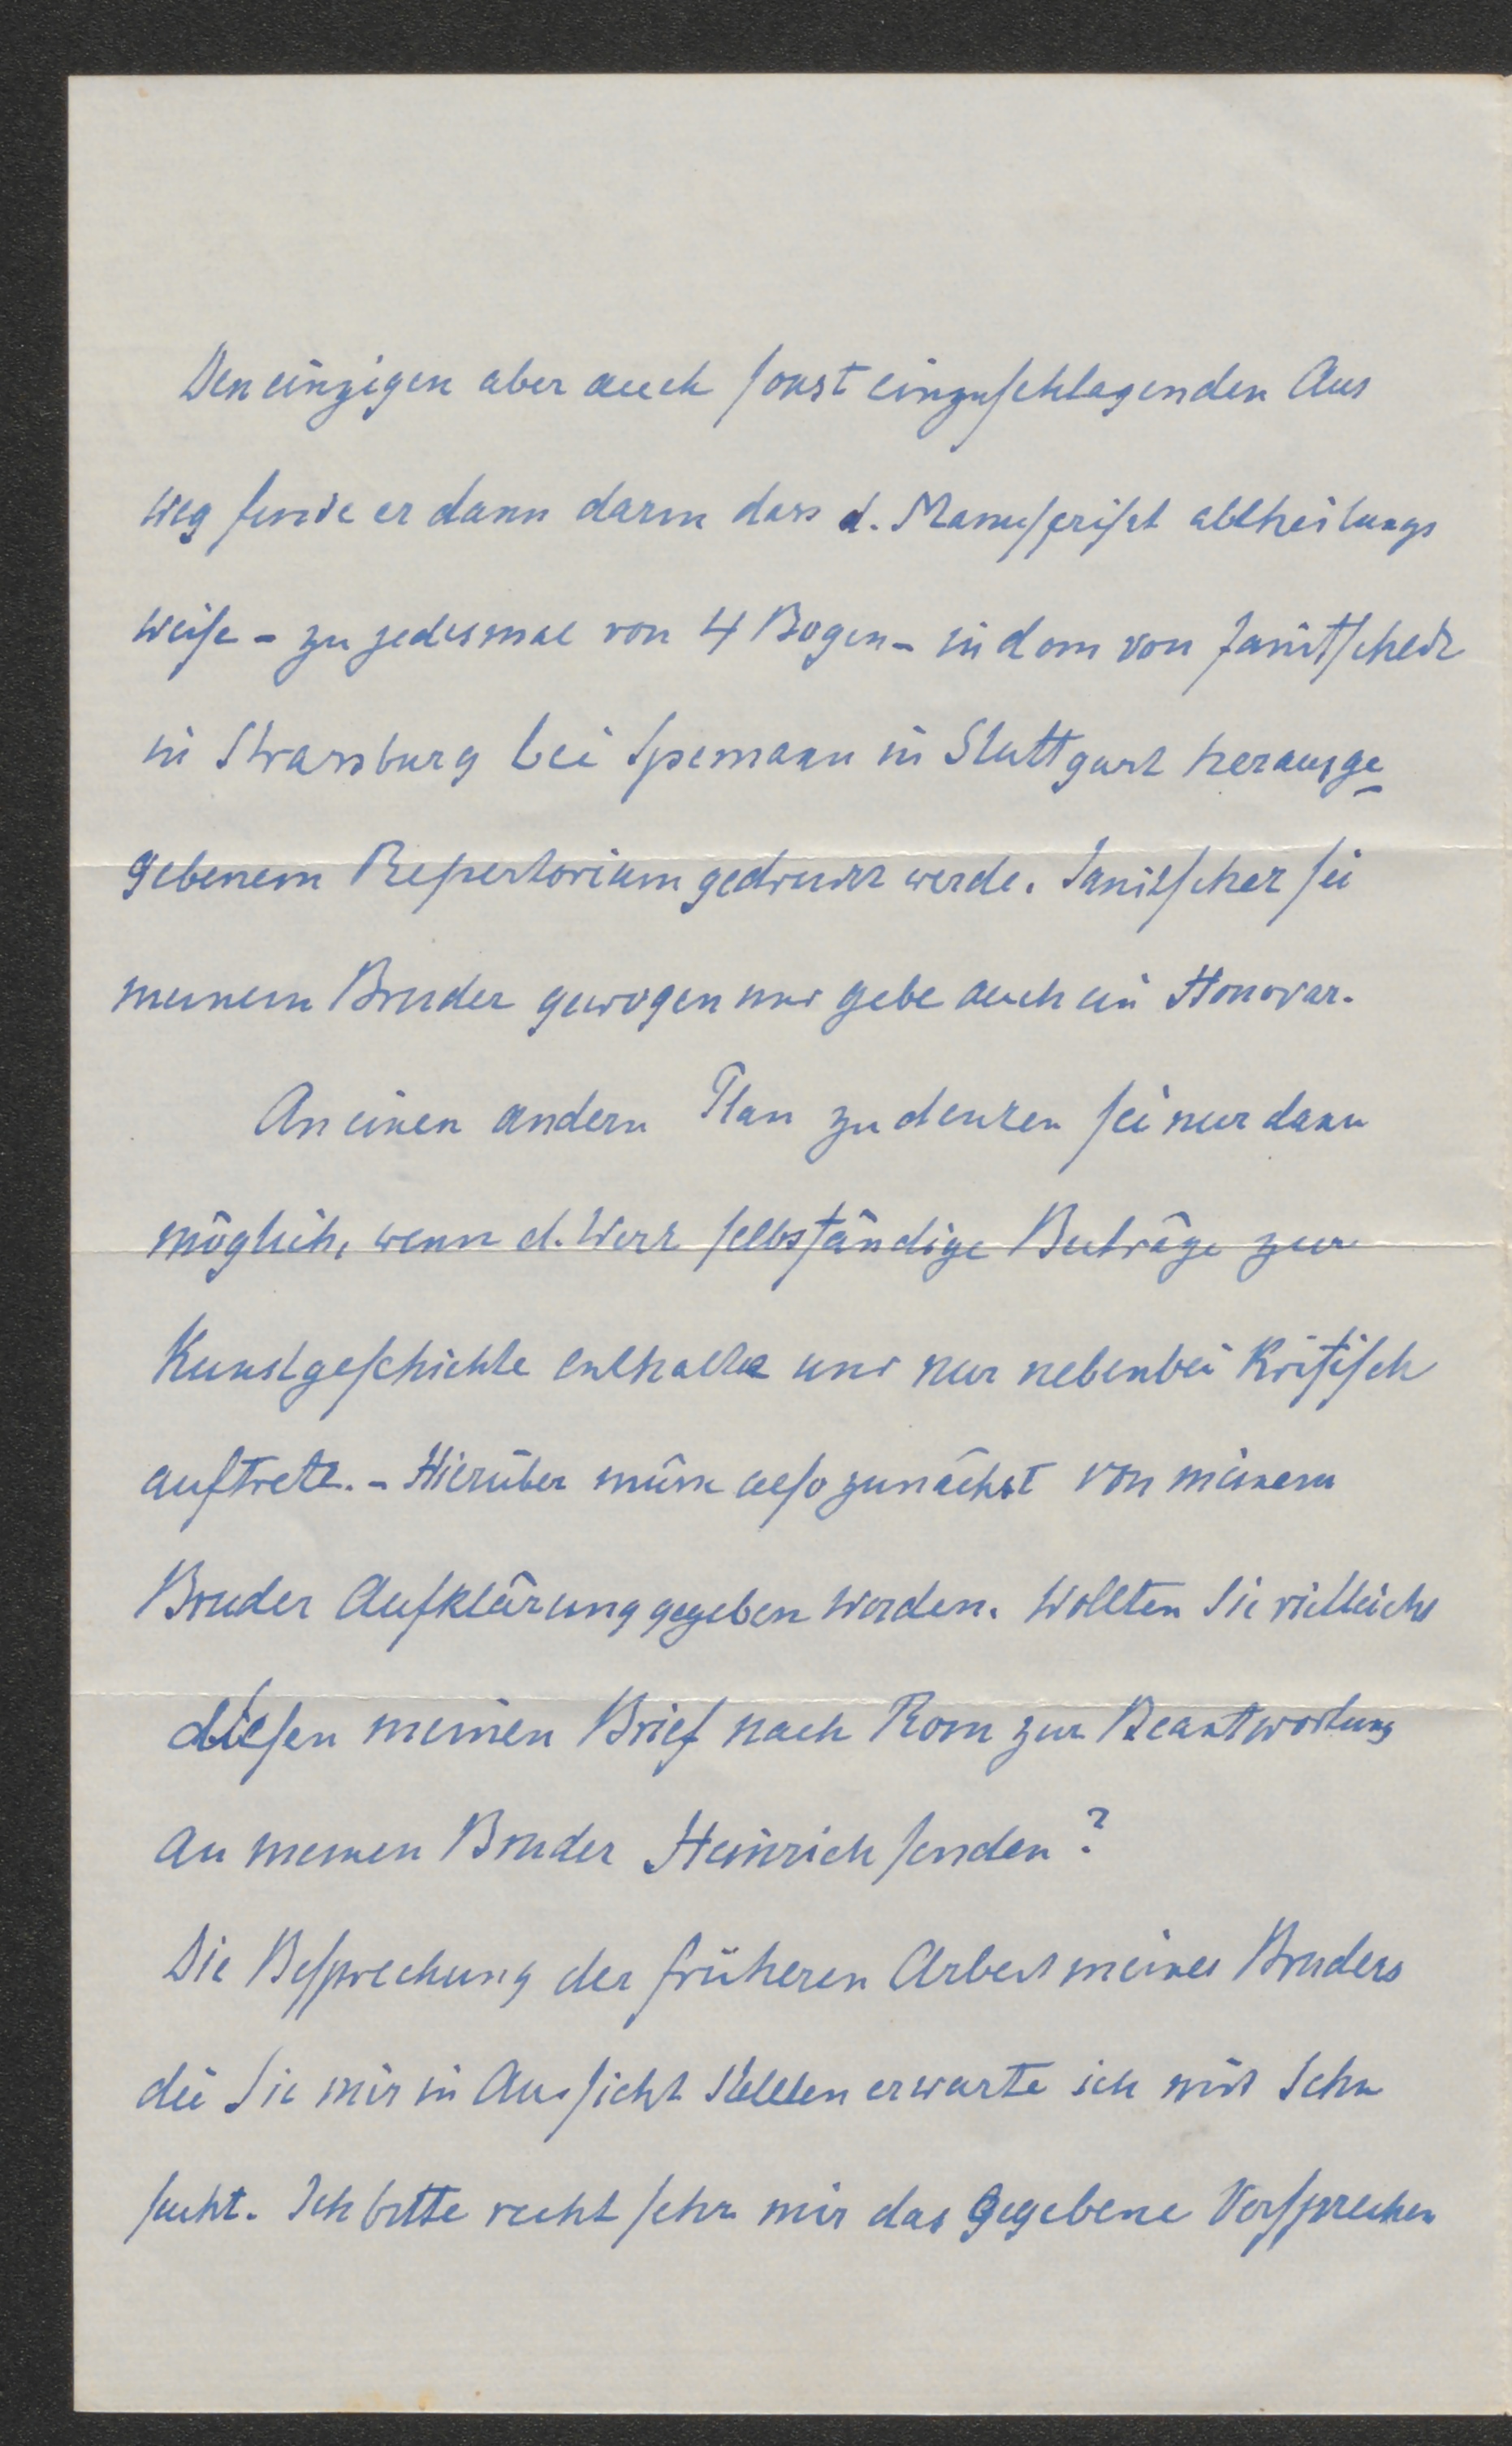 Den einzigen aber auch sonst einzuschlagenden Aus
weg finde er dann darin dass d. Manuscript abtheilungs
weise - zu jedesmal von 4 Bogen - in dem von Janitschek
in Strassburg bei Spemann in Stuttgart herausge
gebenem Repertorium gedruckt werde. Janitschek sei
meinem Bruder gewogen und gebe auch ein Honorar.
An einen andern Plan zu denken sei nur dann
möglich, wenn d. Werk selbständige Beiträge zur
Kunstgeschichte enthalte und nur nebenbei kritisch
auftrete. - Hierüber müsse also zunächst von meinem
Bruder Aufklärung gegeben werden. Wollten Sie vielleicht
diesen meinen Brief nach Rom zur Beantwortung
an meinen Bruder Heinrich senden?
Die Besprechung der früheren Arbeit meines Bruders
die Sie mir in Aussicht stellten erwarte ich mit Sehn
sucht. Ich bitte recht sehr mir das gegebene Versprechen